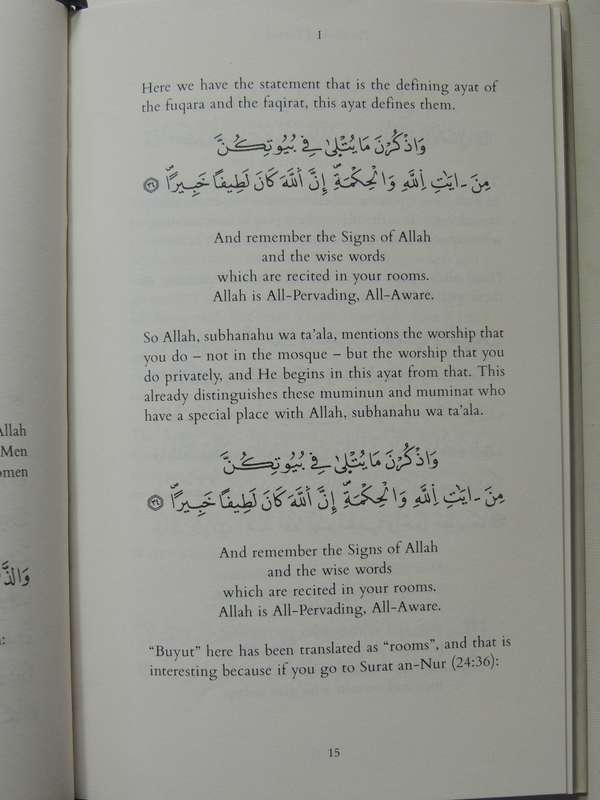 Allah
Men
omen
I
Here we have the statement that is the defining ayat of
the fuqara and the faqirat, this ayat defines them.
وَاذْكُرْنَ مَا يُتْلَىٰ فِي بُيُوتِكُنَّ
مِنَ ـ ايَٰتِ اِ۬للَّهِ وَالْحِكْمَةِۖ إِنَّ اَ۬للَّهَ كَانَ لَطِيفًا خَبِيرًاۖ ٣٤
And remember the Signs of Allah
and the wise words
which are recited in your rooms.
Allah is All-Pervading, All-Aware.
So Allah, subhanahu wa ta’ala, mentions the worship that
you do – not in the mosque – but the worship that you
do privately, and He begins in this ayat from that. This
already distinguishes these muminun and muminat who
have a special place with Allah, subhanahu wa ta’ala.
وَاذْكُرْنَ مَا يُتْلَىٰ فِي بُيُوتِكُنَّ
مِنَ ـ ايَٰتِ اِ۬للَّهِ وَالْحِكْمَةِۖ إِنَّ اَ۬للَّهَ كَانَ لَطِيفًا خَبِيرًاۖ ٣٤
And remember the Signs of Allah
and the wise words
which are recited in your rooms.
Allah is All-Pervading, All-Aware.
“Buyut” here has been translated as “rooms”, and that is
interesting because if you go to Surat an-Nur (24:36):
15